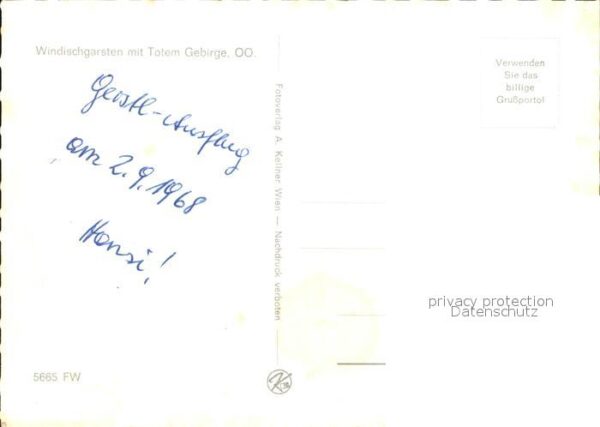 Windischgarsten mit Totem Gebirge, OÖ.
Gerstl-Ausflug
am 2.9.1968
Hansi!
Fotoverlag A. Kellner Wien — Nachdruck verboten
Verwenden
Sie das
billige
Grußporto!
privacy protection
Datenschutz
5665 FW